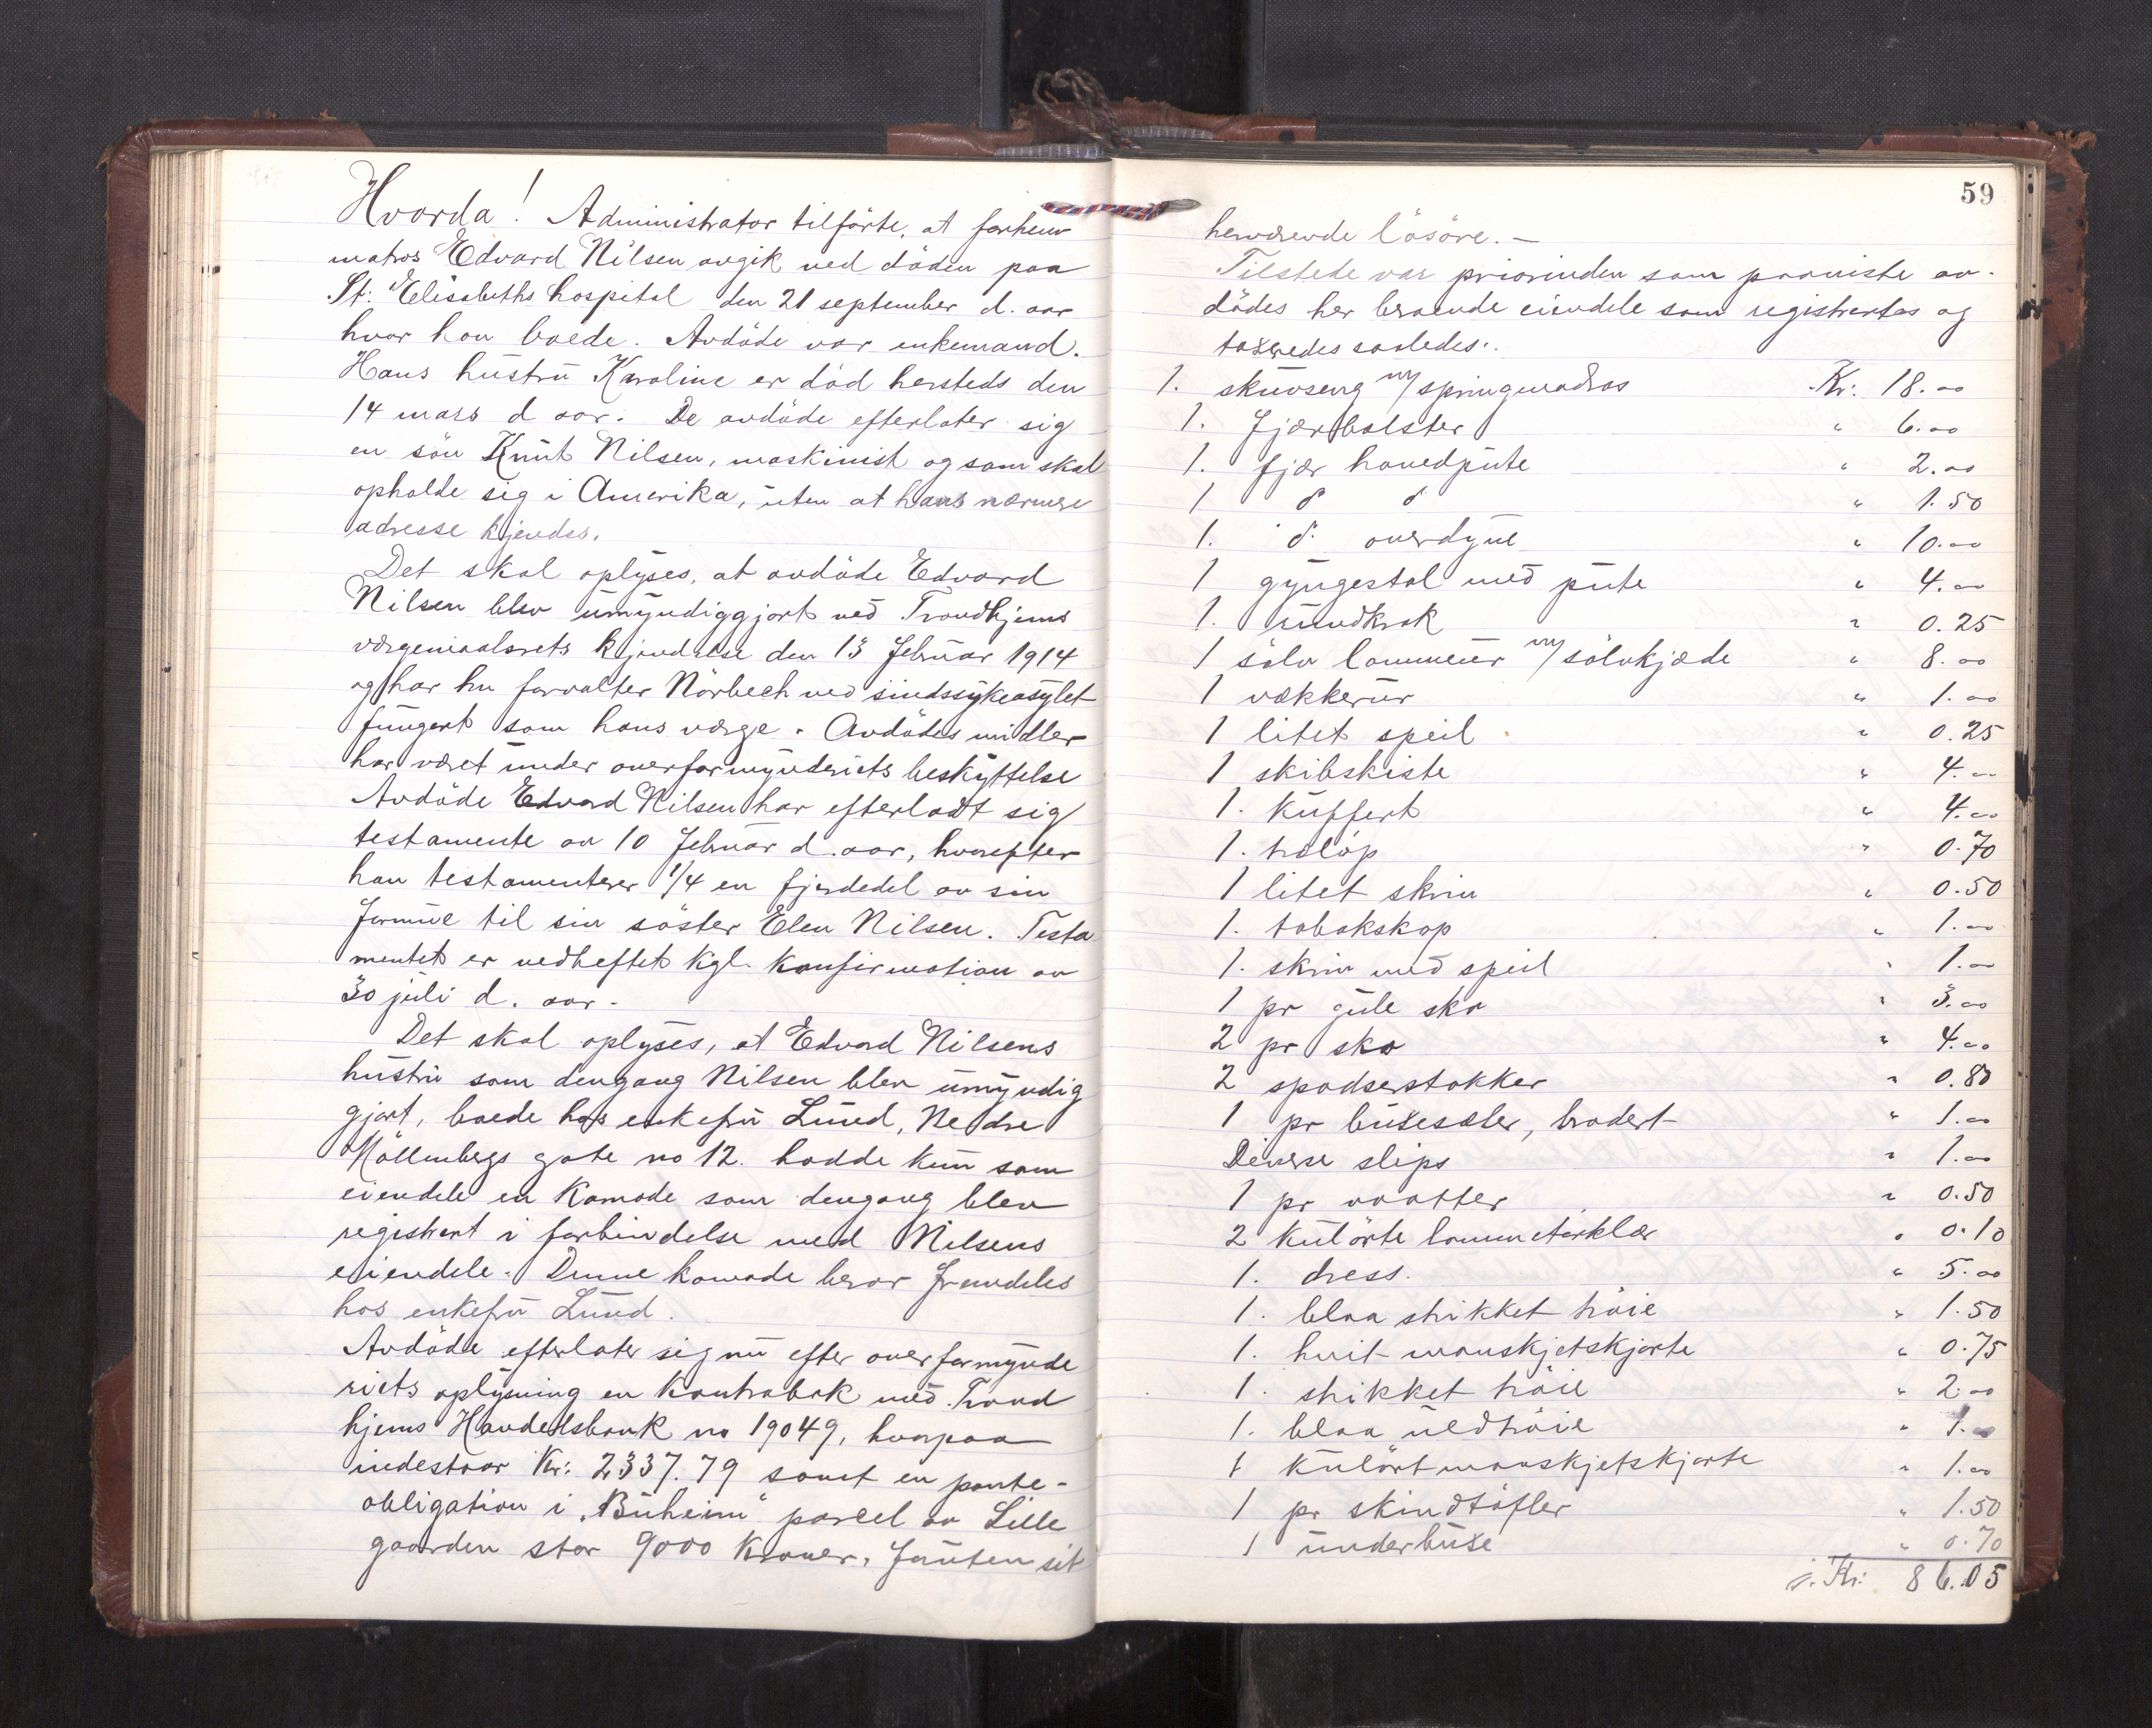 Hvorda! Administrator tilförte, at forhenv
matros Edvard Nilsen avgik ved döden paa
St: Elisabeths hospital den 21 september d. aar
hvor han boede. Avdöde var enkemand.
Hans hustru Karoline er död hersteds den
14 mars d aar. De avdöde efterlater sig
en sön Knut Nilsen, maskinist og som skal
opholde sig i Amerika, uten at hans nærmere
adresse kjendes.
Det skal oplyses, at avdöde Edvard
Nilsen blev umyndiggjort ved Trondhjems
vergemaalsrets kjendelse den 13 februar 1914
og har hr forvalter Nörbech ved sindssykeasylet
fungert som hans verge. Avdödes midler
har været under overformynderiets beskyttelse
Avdöde Edvard Nilsen har efterladt sig
testamente av 10 februar d. aar, hvorefter
han testamenterer 1/4 en fjerdedel av sin
formue til sin söster Elen Nilsen. Testa
mentet er vedheftet kgl. konfirmation av
30 juli d. aar.
Det skal oplyses, at Edvard Nilsens
hustru som dengang Nilsen blev umyndig
gjort, boede hos enkefru Lund, Nedre
Möllenbergs gate no 12. hadde kun som
eiendele en Komode som dengang blev
registrert i forbindelse med Nilsens
eiendele. Denne komode beror fremdeles
hos enkefru Lund.
Avdöde efterlater sig nu efter overformynde
riets oplysning en Kontrabok med Trond
hjems Handelsbank no 19049, hvorpaa
indestaar Kr: 2337.79 samt en pante-
obligation i "Buheim" parcel av Lille
gaarden stor 9000 Kroner, foruten sit
59
herværende lösöre. —
Tilstede var priorinden som paaviste av-
dödes her beroende eiendele som registrertes og
taxeredes saaledes:.
1. skuvseng m/springmadras Kr: 18.00
1. fjærbolster " 6.00
1. fjær hovedpute " 2.00
1 do do " 1.50
1. do overdyne " 10.00
1 gyngestol med pute " 4.00
1. rundkrak " 0.25
1 sölv lommeur m/sölvkjæde " 8.00
1 vækkerur " 1.00
1 litet speil " 0.25
1 skibskiste " 4.00
1. kuffert " 4.00
1. tralöp " 0.70
1 litet skrin " 0.50
1. tobakskop " 1.00
1. skrin med speil " 1.00
1 pr gule sko " 3.00
2 pr sko " 4.00
2 spadserstokker " 0.80
1 pr buxesæler, brodert " 1.00
Diverse slips " 1.00
1 pr vaatter " 0.50
2 kulörte lommetörklær " 0.10
1. dress. " 5.00
1. blaa strikket tröie " 1.50
1. hvit manskjetskjorte " 0.75
1. strikket tröie " 2.00
1. blaa uldtröie " 1.00
1 kulört manskjetskjorte " 1.00
1 pr skindtöfler " 1.50
1 underbuxe " 0.70
Kr: 86.05